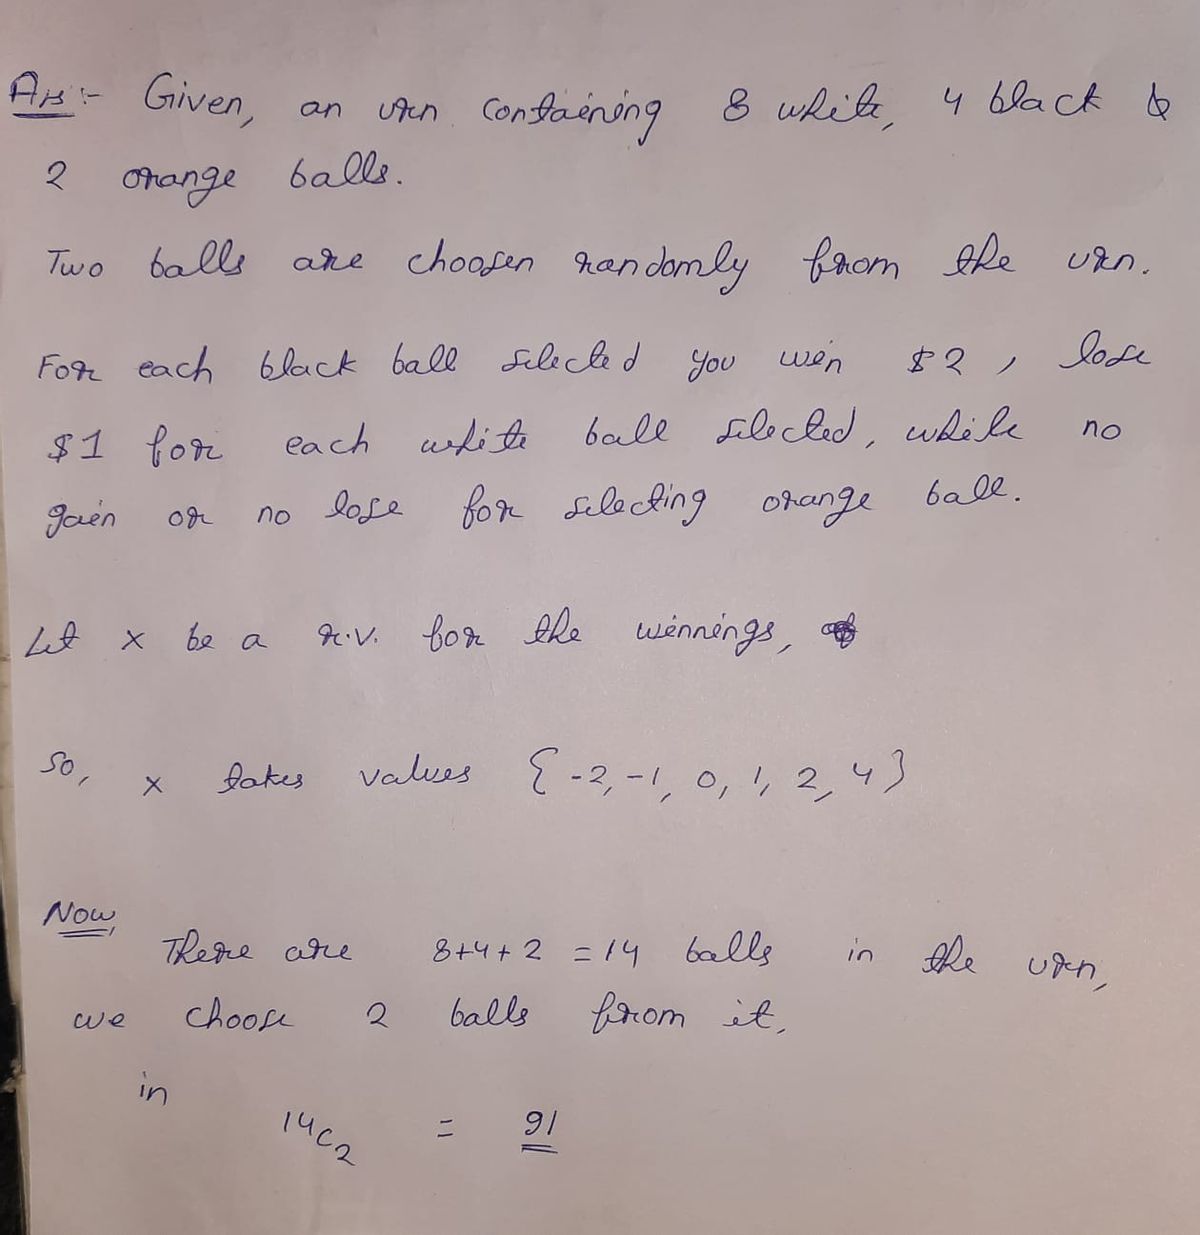 Ans:- Given, an urn containing 8 white, 4 black &
2 orange balls.
Two balls are choosen randomly from the urn.
For each black ball selected you win $2, lose
$1 for each white ball selected, while no
gain or no lose for selecting orange ball.
Let x be a r.v. for the winnings,
So, x takes values {-2, -1, 0, 1, 2, 4}
Now,
There are 8+4+2 = 14 balls in the urn,
we choose 2 balls from it,
in
¹⁴C₂ = 91